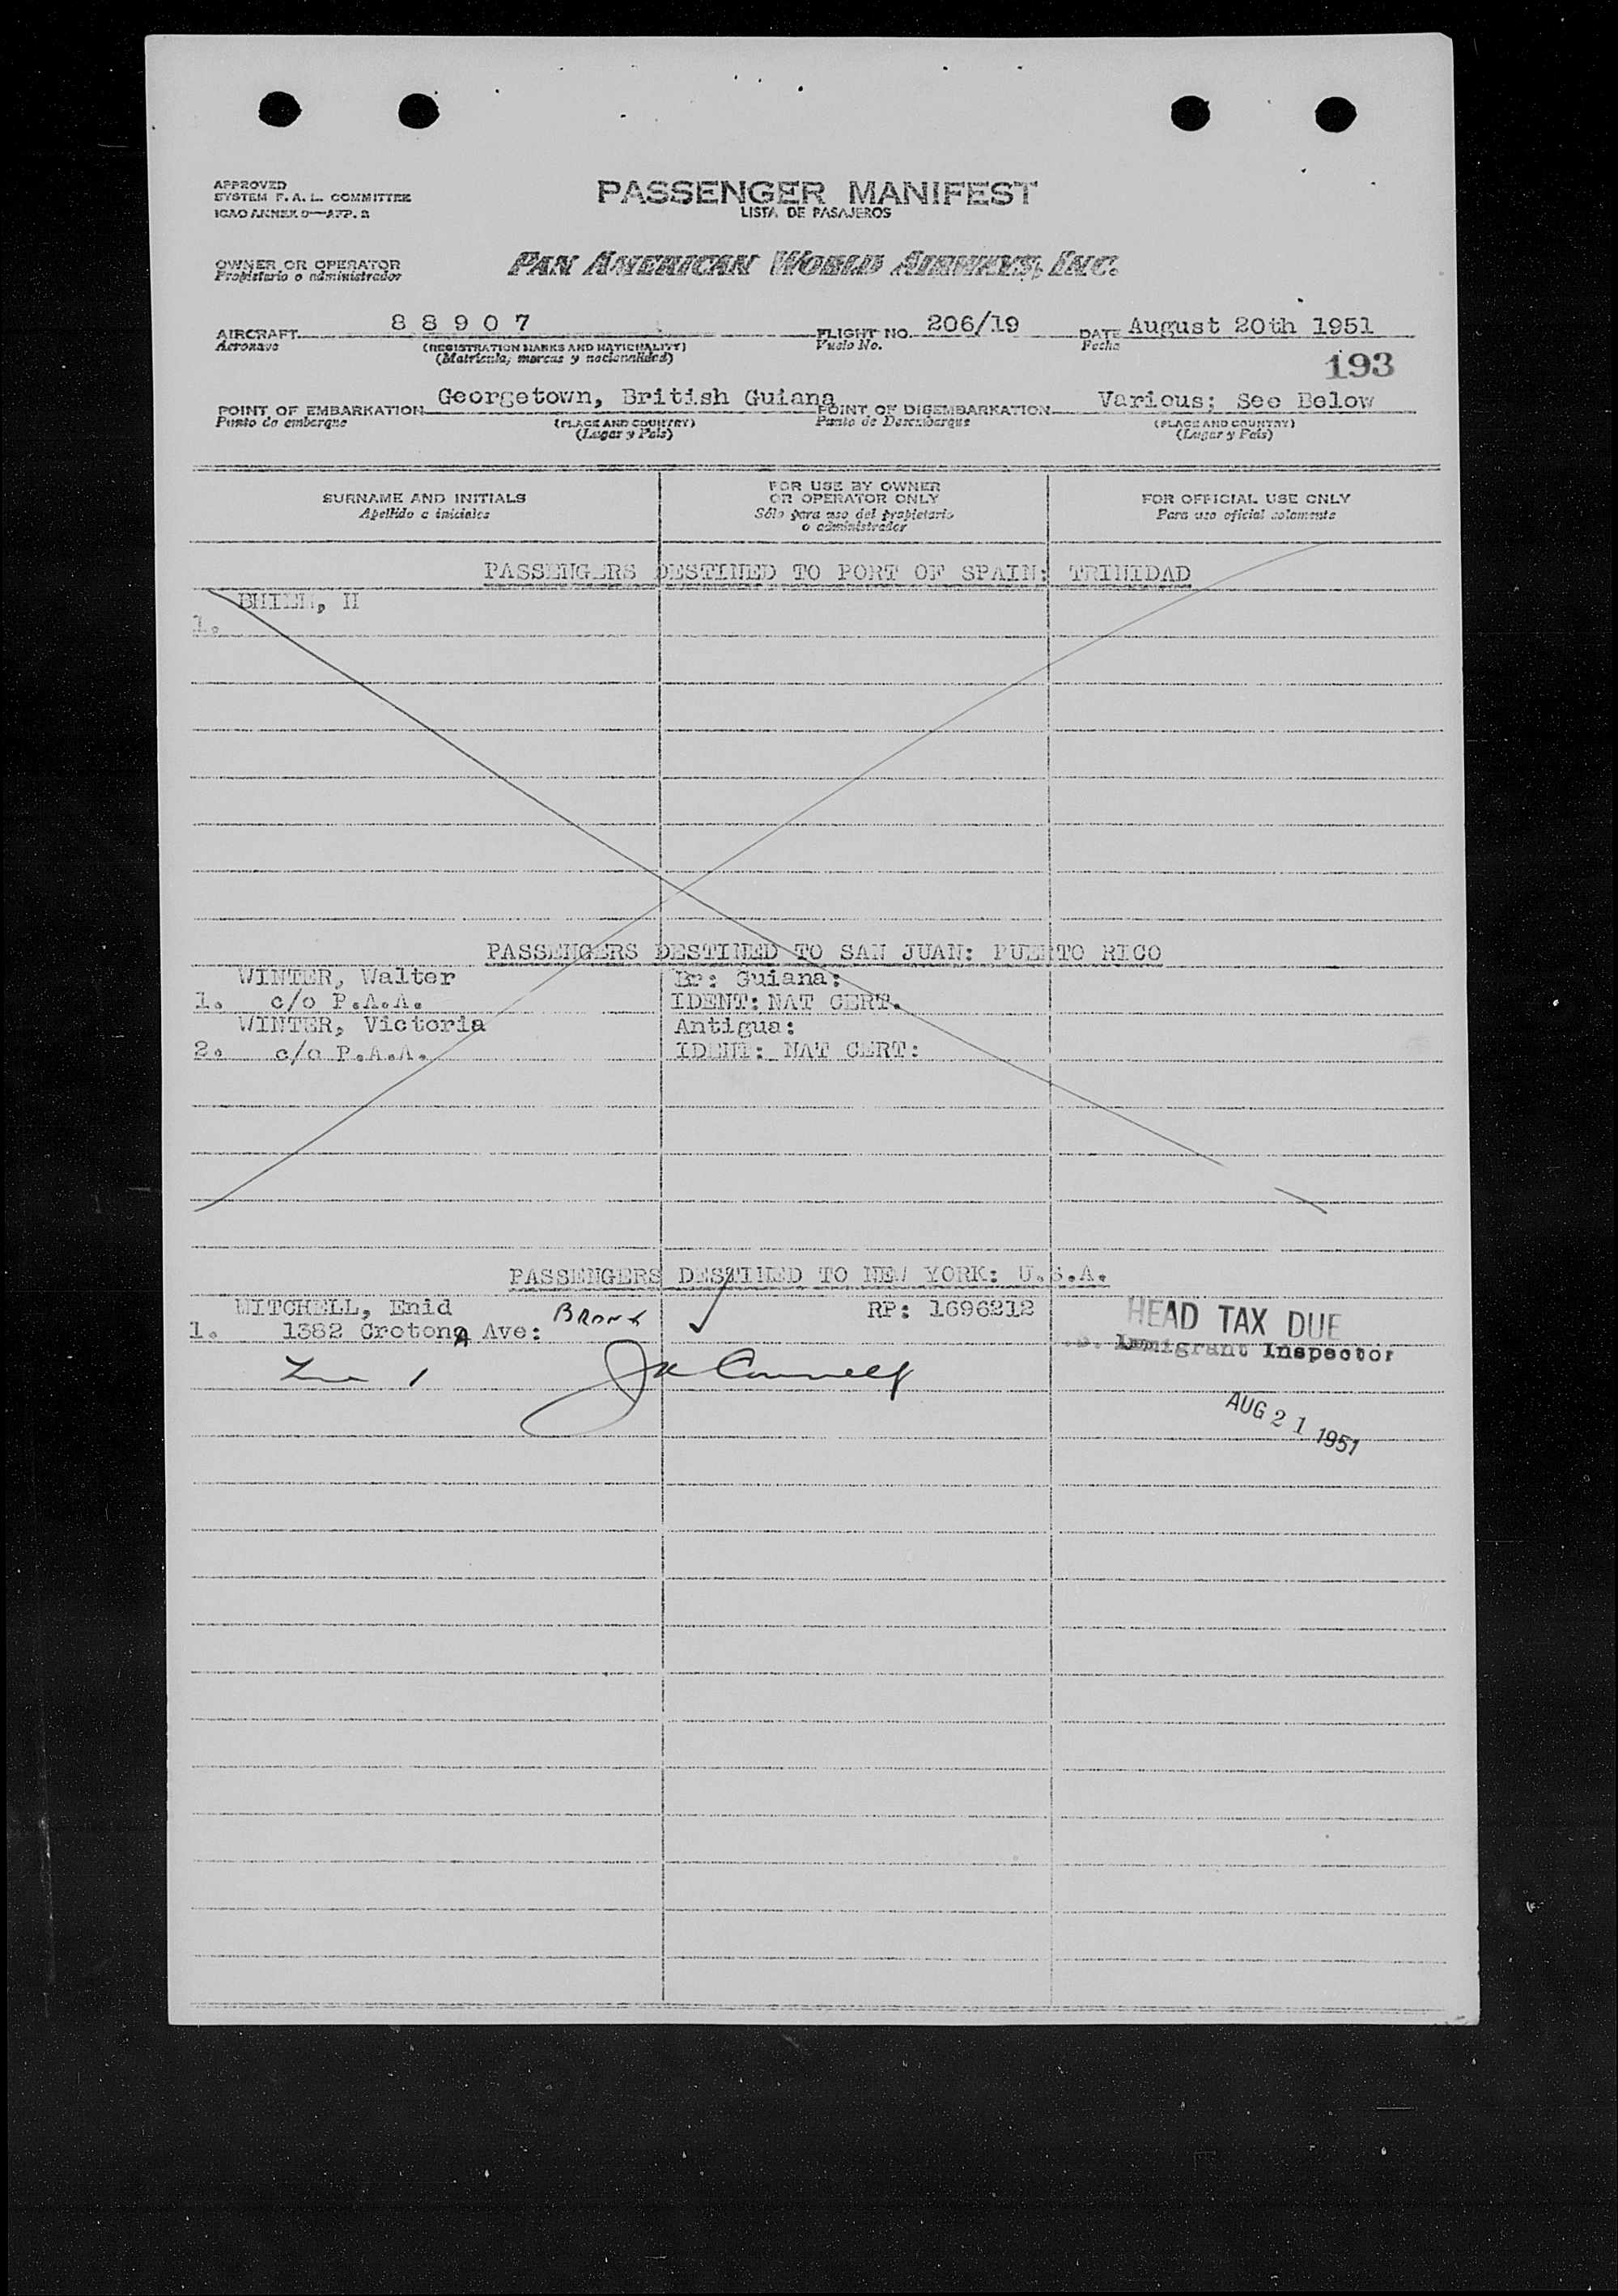 APPROVED
SYSTEM F. A. L. COMMITTEE
ICAO ANNEX 9—APP. 2
PASSENGER MANIFEST
LISTA DE PASAJEROS
OWNER OR OPERATOR
Propietario o administrador
PAN AMERICAN WORLD AIRWAYS, INC.
AIRCRAFT 8 8 9 0 7 FLIGHT NO. 206/19 DATE August 20th 1951
Aeronave (REGISTRATION MARKS AND NATIONALITY) Vuelo No. Fecha
(Matrícula, marcas y nacionalidad)
193
POINT OF EMBARKATION Georgetown, British Guiana POINT OF DISEMBARKATION Various; See Below
Punto de embarque (PLACE AND COUNTRY) Punto de Desembarque (PLACE AND COUNTRY)
(Lugar y País) (Lugar y País)
SURNAME AND INITIALS FOR USE BY OWNER OR OPERATOR ONLY FOR OFFICIAL USE ONLY
Apellido e iniciales Sólo para uso del propietario o administrador Para uso oficial solamente
PASSENGERS DESTINED TO PORT OF SPAIN: TRINIDAD
1.
PASSENGERS DESTINED TO SAN JUAN: PUERTO RICO
WINTER, Walter Br: Guiana:
1. c/o P.A.A. IDENT: NAT CERT.
WINTER, Victoria Antigua:
2. c/o P.A.A. IDENT: NAT CERT:
PASSENGERS DESTINED TO NEW YORK: U.S.A.
MITCHELL, Enid BRONX RP: 1696212 HEAD TAX DUE
1. 1382 Crotona Ave: Immigrant Inspector
AUG 21 1951